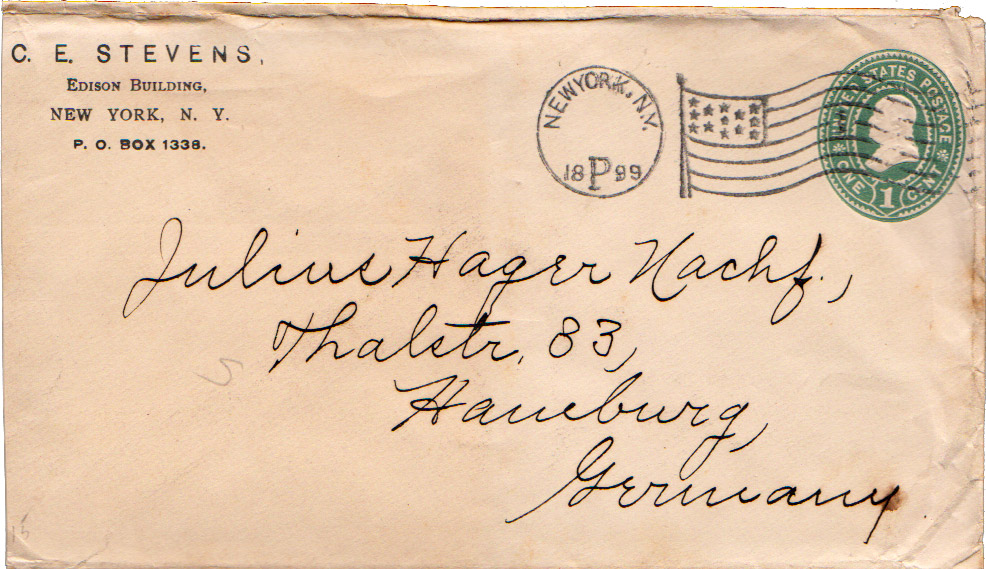 C. E. STEVENS,
EDISON BUILDING,
NEW YORK, N. Y.
P. O. BOX 1338.
NEW YORK, N.Y.
18 P 99
UNITED STATES POSTAGE
ONE 1 CENT
Julius Hager Nachf.,
Thalstr. 83,
Hamburg,
Germany
15